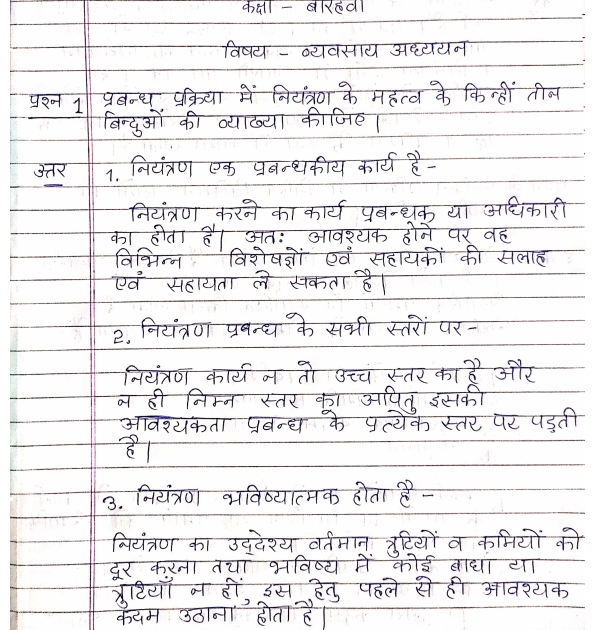 कक्षा - बारहवी
विषय - व्यवसाय अध्ययन
प्रश्न 1 प्रबन्ध प्रक्रिया में नियंत्रण के महत्व के किन्हीं तीन
बिन्दुओं की व्याख्या कीजिए।
उत्तर 1. नियंत्रण एक प्रबन्धकीय कार्य है -
नियंत्रण करने का कार्य प्रबन्धक या अधिकारी
का होता है। अतः आवश्यक होने पर वह
विभिन्न विशेषज्ञों एवं सहायकों की सलाह
एवं सहायता ले सकता है।
2. नियंत्रण प्रबन्ध के सभी स्तरों पर -
नियंत्रण कार्य न तो उच्च स्तर का है और
न ही निम्न स्तर का अपितु इसकी
आवश्यकता प्रबन्ध के प्रत्येक स्तर पर पड़ती
है।
3. नियंत्रण भविष्यात्मक होता है -
नियंत्रण का उद्देश्य वर्तमान त्रुटियों व कमियों को
दूर करना तथा भविष्य में कोई बाधा या
त्रुटियाँ न हों, इस हेतु पहले से ही आवश्यक
कदम उठाना होता है।